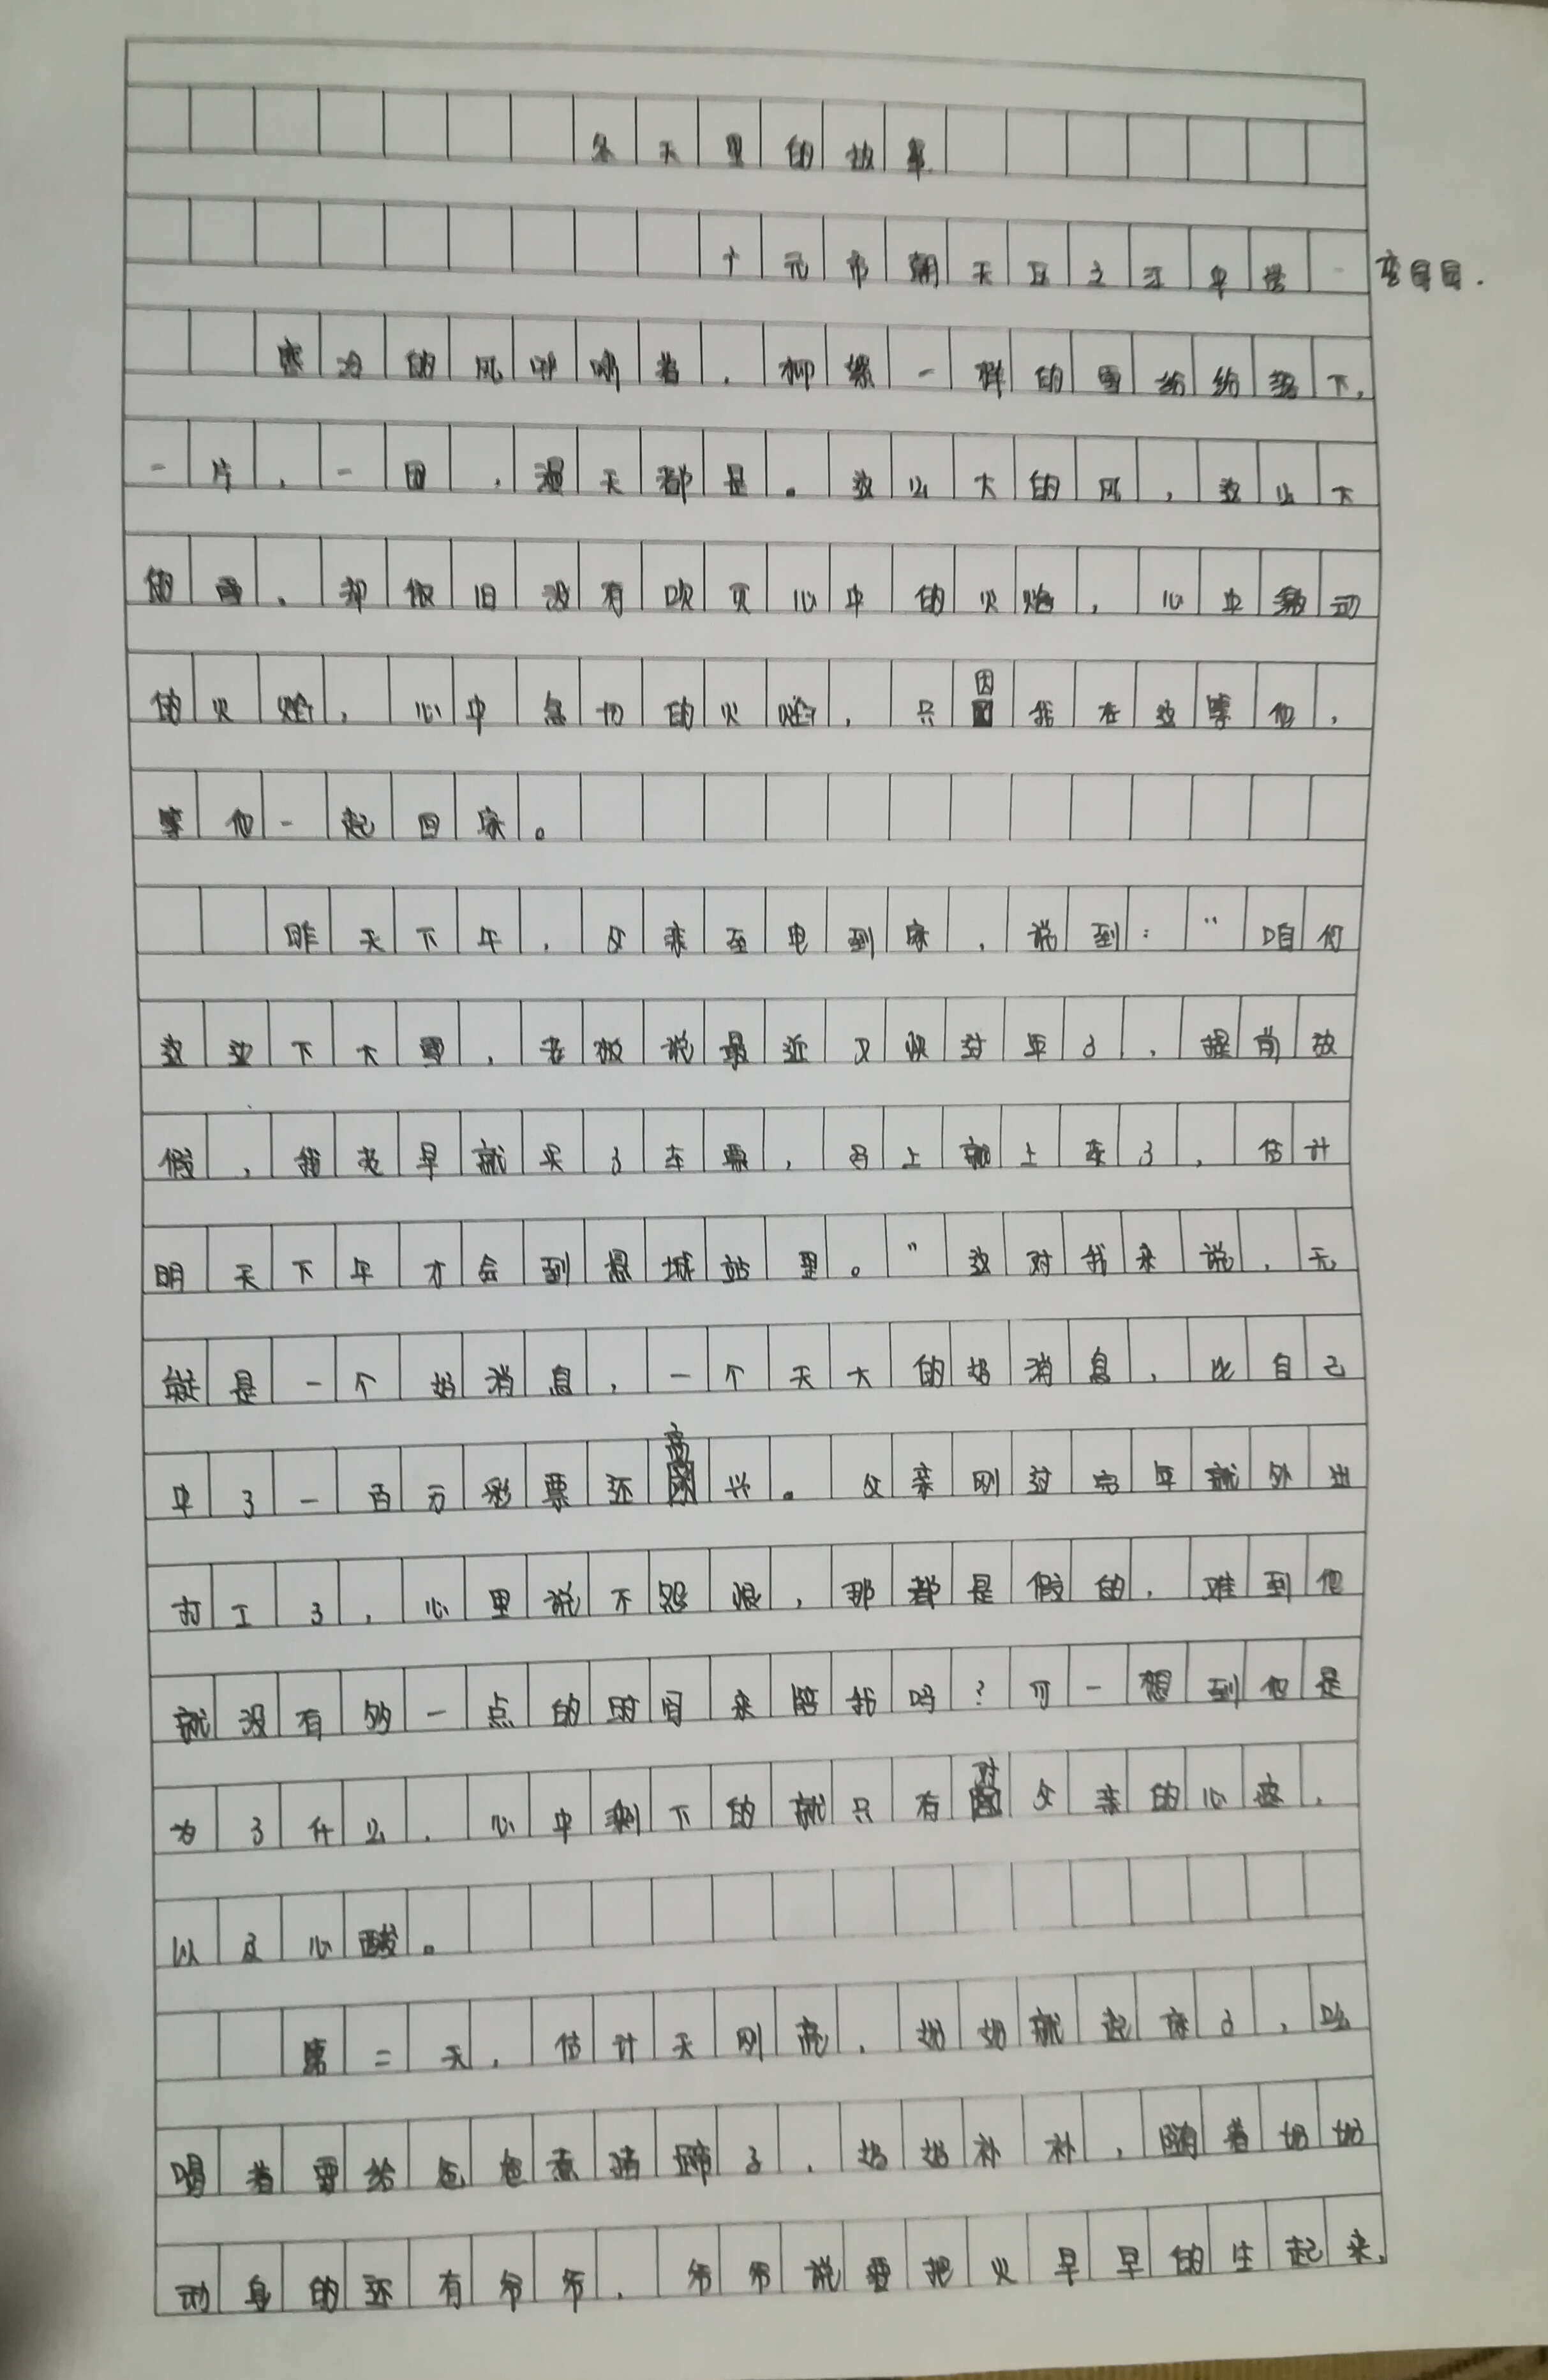 冬天里的故事
广元市朝天区之江中学
寒冷的风呼啸着，柳絮一样的雪纷纷飘下，
一片，一团，漫天都是。这么大的风，这么大
的雪，却依旧没有吹灭心中的火焰，心中激动
的火焰，心中急切的火焰，只因我在这等他，
等他一起回家。
昨天下午，父亲至电到家，说到：“咱们
这边下大雪，老板说最近又快过年了，提前放
假，我老早就买了车票，马上就上车了，估计
明天下午才会到县城站里。”这对我来说，无
疑是一个好消息，一个天大的好消息，比自己
中了一百万彩票还高兴。父亲刚过完年就外出
打工了，心里说不怨恨，那都是假的，难到他
就没有多一点的时间来陪我吗？可一想到他是
为了什么，心中剩下的就只有对父亲的心疼，
以及心酸。
第二天，估计天刚亮，奶奶就起床了，吆
喝着要给爸爸煮猪蹄子，好好补补，随着奶奶
动身的还有爷爷，爷爷说要把火早早的生起来，